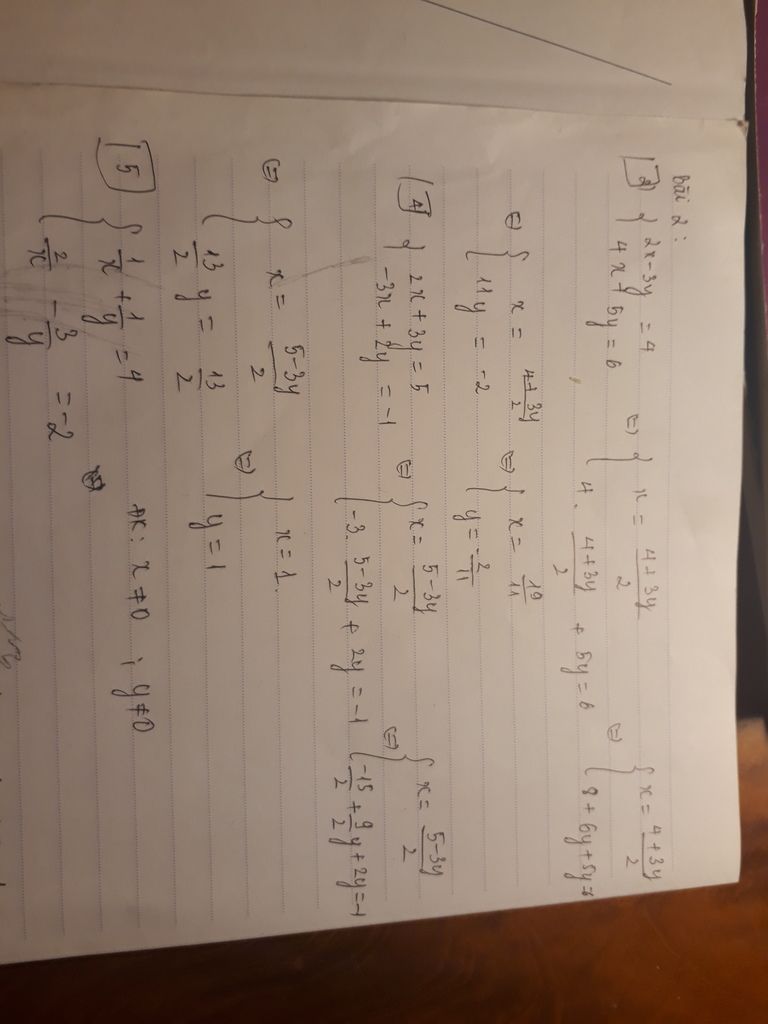 Bài 2:
2) { 2x - 3y = 4 ; 4x + 5y = 6 ⇔ { x = (4+3y)/2 ; 4 . (4+3y)/2 + 5y = 6 ⇔ { x = (4+3y)/2 ; 8 + 6y + 5y = 6
⇔ { x = (4+3y)/2 ; 11y = -2 ⇔ { x = 19/11 ; y = -2/11
4) { 2x + 3y = 5 ; -3x + 2y = -1 ⇔ { x = (5-3y)/2 ; -3. (5-3y)/2 + 2y = -1 ⇔ { x = (5-3y)/2 ; -15/2 + 9/2 y + 2y = -1
⇔ { x = (5-3y)/2 ; 13/2 y = 13/2 ⇔ { x = 1. ; y = 1
5) { 1/x + 1/y = 4 ; 2/x - 3/y = -2
đk: x ≠ 0 ; y ≠ 0